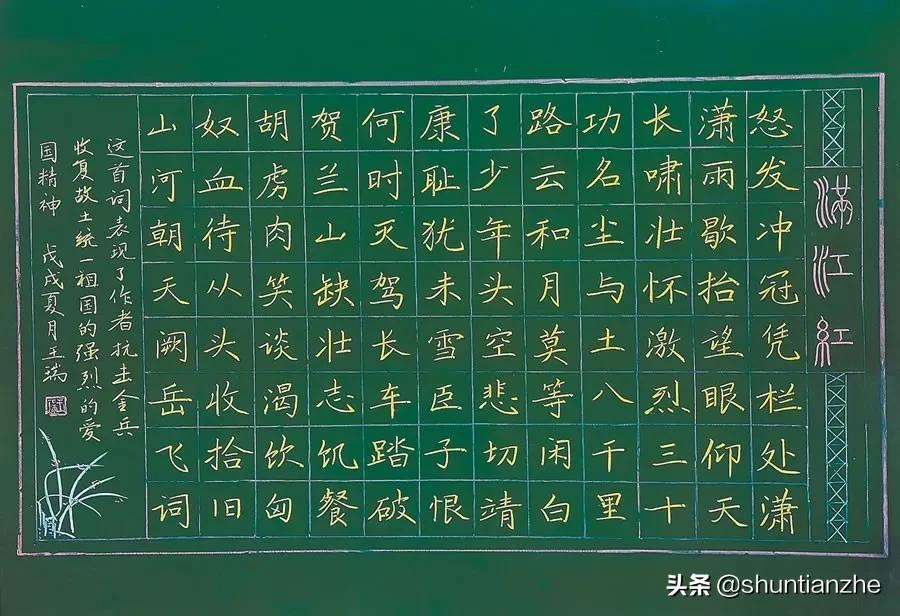 满江紅
怒发冲冠凭栏处潇
潇雨歇抬望眼仰天
长啸壮怀激烈三十
功名尘与土八千里
路云和月莫等闲白
了少年头空悲切靖
康耻犹未雪臣子恨
何时灭驾长车踏破
贺兰山缺壮志饥餐
胡虏肉笑谈渴饮匈
奴血待从头收拾旧
山河朝天阙岳飞词
这首词表现了作者抗击金兵
收复故土统一祖国的强烈的爱
国精神 戊戌夏月王瑞
头条 @shuntianzhe